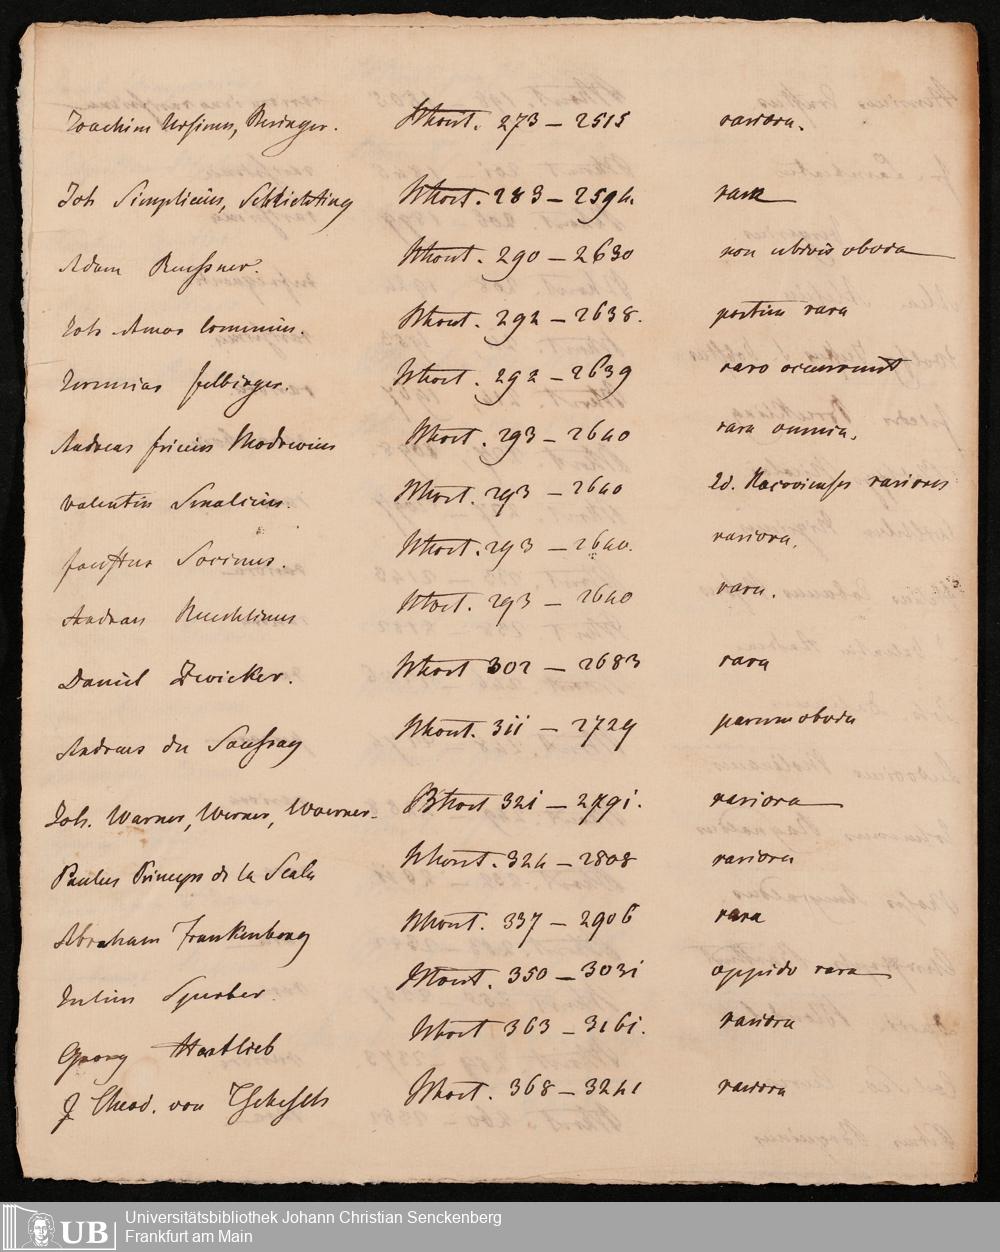 Joachim Ursinus, Beringer. Thort. 273 – 2515 rariora.
Joh Simplicius, Schlichting Thort. 283 – 2594. rara
Adam Reussner. Thort. 290 – 2630 non ubivis obvia
Joh. Amos Comenius. Thort. 292 – 2638. partim rara
Jeremias Felbinger. Thort. 292 – 2639 raro occurrunt
Andreas Fricius Modrevius Thort. 293 – 2640 rara omnia.
Valentin Smalcius. Thort. 293 – 2640 Ed. Racovienses rariores
Faustus Socinus. Thort. 293 – 2640. rariora.
Andreas Thort. 293 – 2640 rara.
Daniel Zwicker. Thort 302 – 2683 rara
Andreas du Saussay Thort. 311 – 2729 parum obvia
Joh. Warner, Werner, Woerner. Thort 321 – 2791. rariora
Paulus Princeps de la Scala Thort. 324 – 2808 rariora
Abraham Frankenberg Thort. 337 – 2906 rara
Julius Sperber. Thort. 350 – 3031 oppido rara
Georg Hartlieb Thort 363 – 3161. rariora
J Theod. von Tschesch Thort. 368 – 3241 rariora
UB
Universitätsbibliothek Johann Christian Senckenberg
Frankfurt am Main